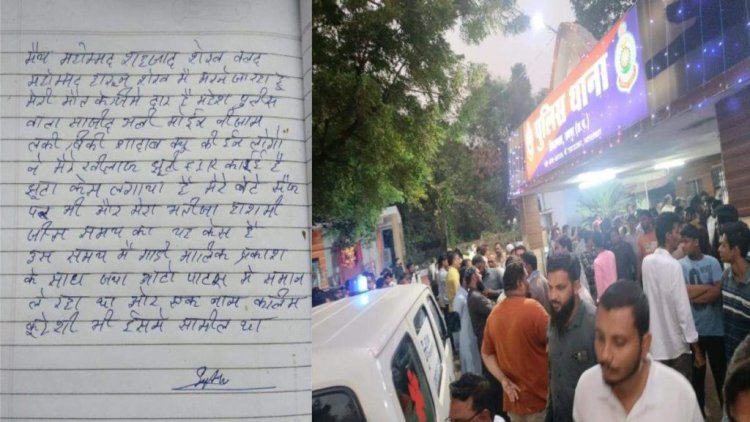 मैय मोहम्मद शहजाद शेख वल्द
मोहम्मद हारून शेख मै मरने जा रहा हू
मेरी मौत के जीमेदार है महेश पुलीस
वाला साजीद अली मोईन नीजाम
लकी विकी शादाब क्यू की ईन लोगो
ने मेरे खीलाफ झूठी FIR कराई है
झूठा केस लगाया है मेरे बेटे सैफ
पर भी और मेरा भतीजा हाशमी
जीस समय का यह केस है
उस समय मै गाडी मालिक प्रकाश
के साथ जया ओटो पार्टस मे समान
ले रहा था और एक नाम कलिम
कुरेशी भी ईसमे सामील था
पुलिस थाना